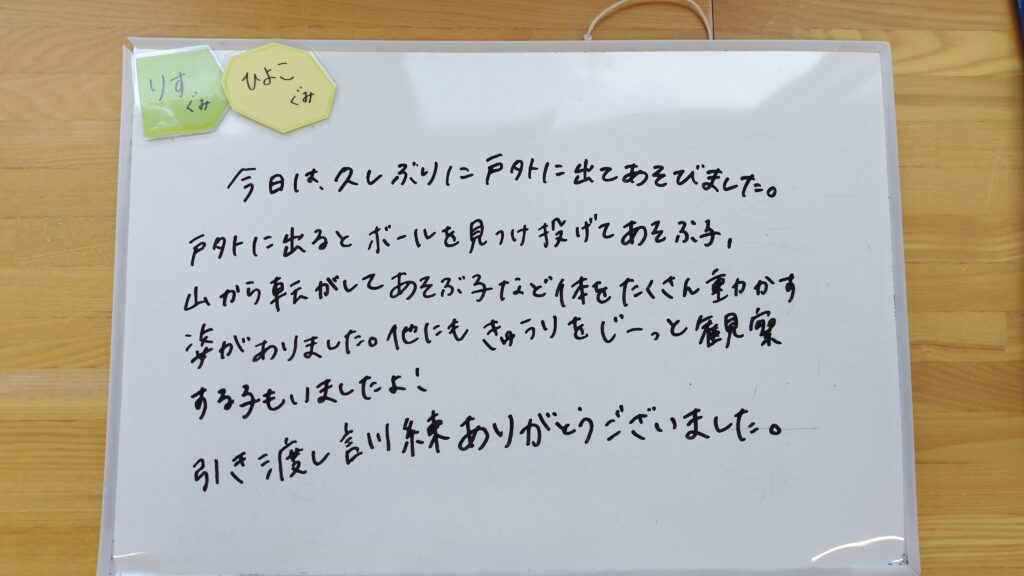 りす
ぐみ
ひよこ
ぐみ
今日は、久しぶりに戸外に出てあそびました。
戸外に出るとボールを見つけ投げてあそぶ子、
山から転がしてあそぶ子など体をたくさん動かす
姿がありました。他にもきゅうりをじーっと観察
する子もいましたよ!
引き渡し訓練ありがとうございました。